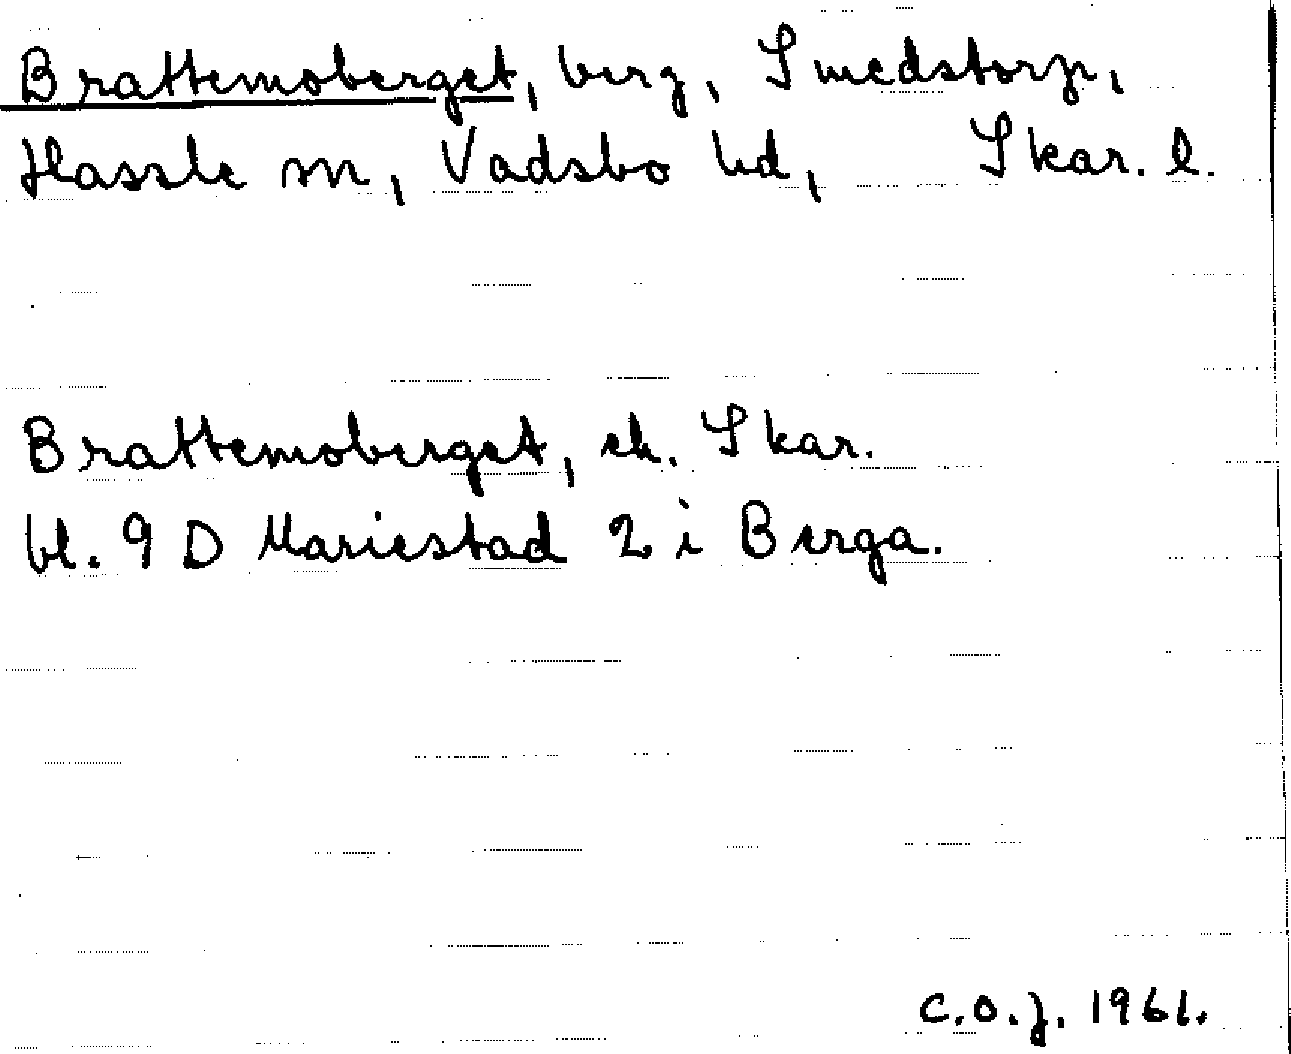 Brattemoberget, berg, Smedstorp,
Hassle sn, Vadsbo hd, Skar. l.
Brattemoberget, ek. Skar.
bl. 9 D Mariestad 2 i Berga.
C.O.J. 1961.